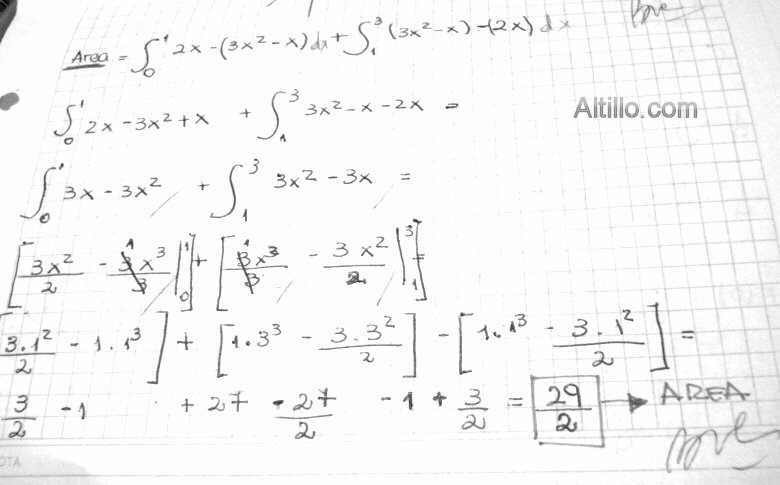 Area = ∫₀¹ 2x - (3x² - x) dx + ∫₁³ (3x² - x) - (2x) dx
∫₀¹ 2x - 3x² + x + ∫₁³ 3x² - x - 2x =
Altillo.com
∫₀¹ 3x - 3x² + ∫₁³ 3x² - 3x =
[3x²/2 - 3x³/3 |₀¹] + [3x³/3 - 3x²/2 |₁³] =
3.1²/2 - 1.1³] + [1.3³ - 3.3²/2] - [1.1³ - 3.1²/2] =
3/2 - 1 + 27 - 27/2 - 1 + 3/2 = 29/2 → AREA
OTA